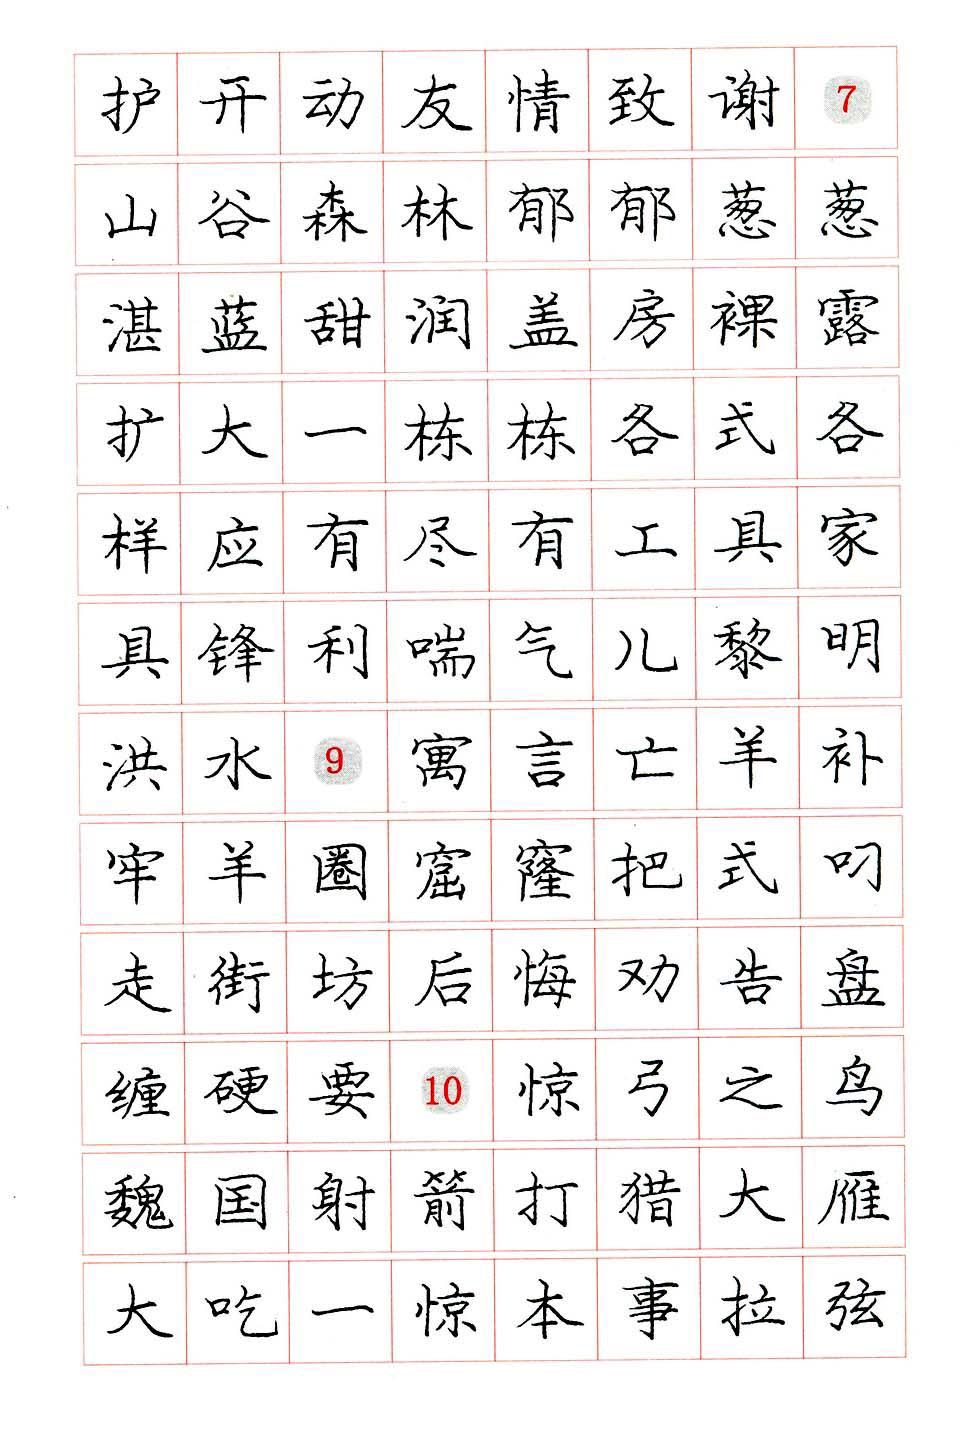 护开动友情致谢7
山谷森林郁郁葱葱
湛蓝甜润盖房裸露
扩大一栋栋各式各
样应有尽有工具家
具锋利喘气儿黎明
洪水9寓言亡羊补
牢羊圈窟窿把式叼
走街坊后悔劝告盘
缠硬要10惊弓之鸟
魏国射箭打猎大雁
大吃一惊本事拉弦